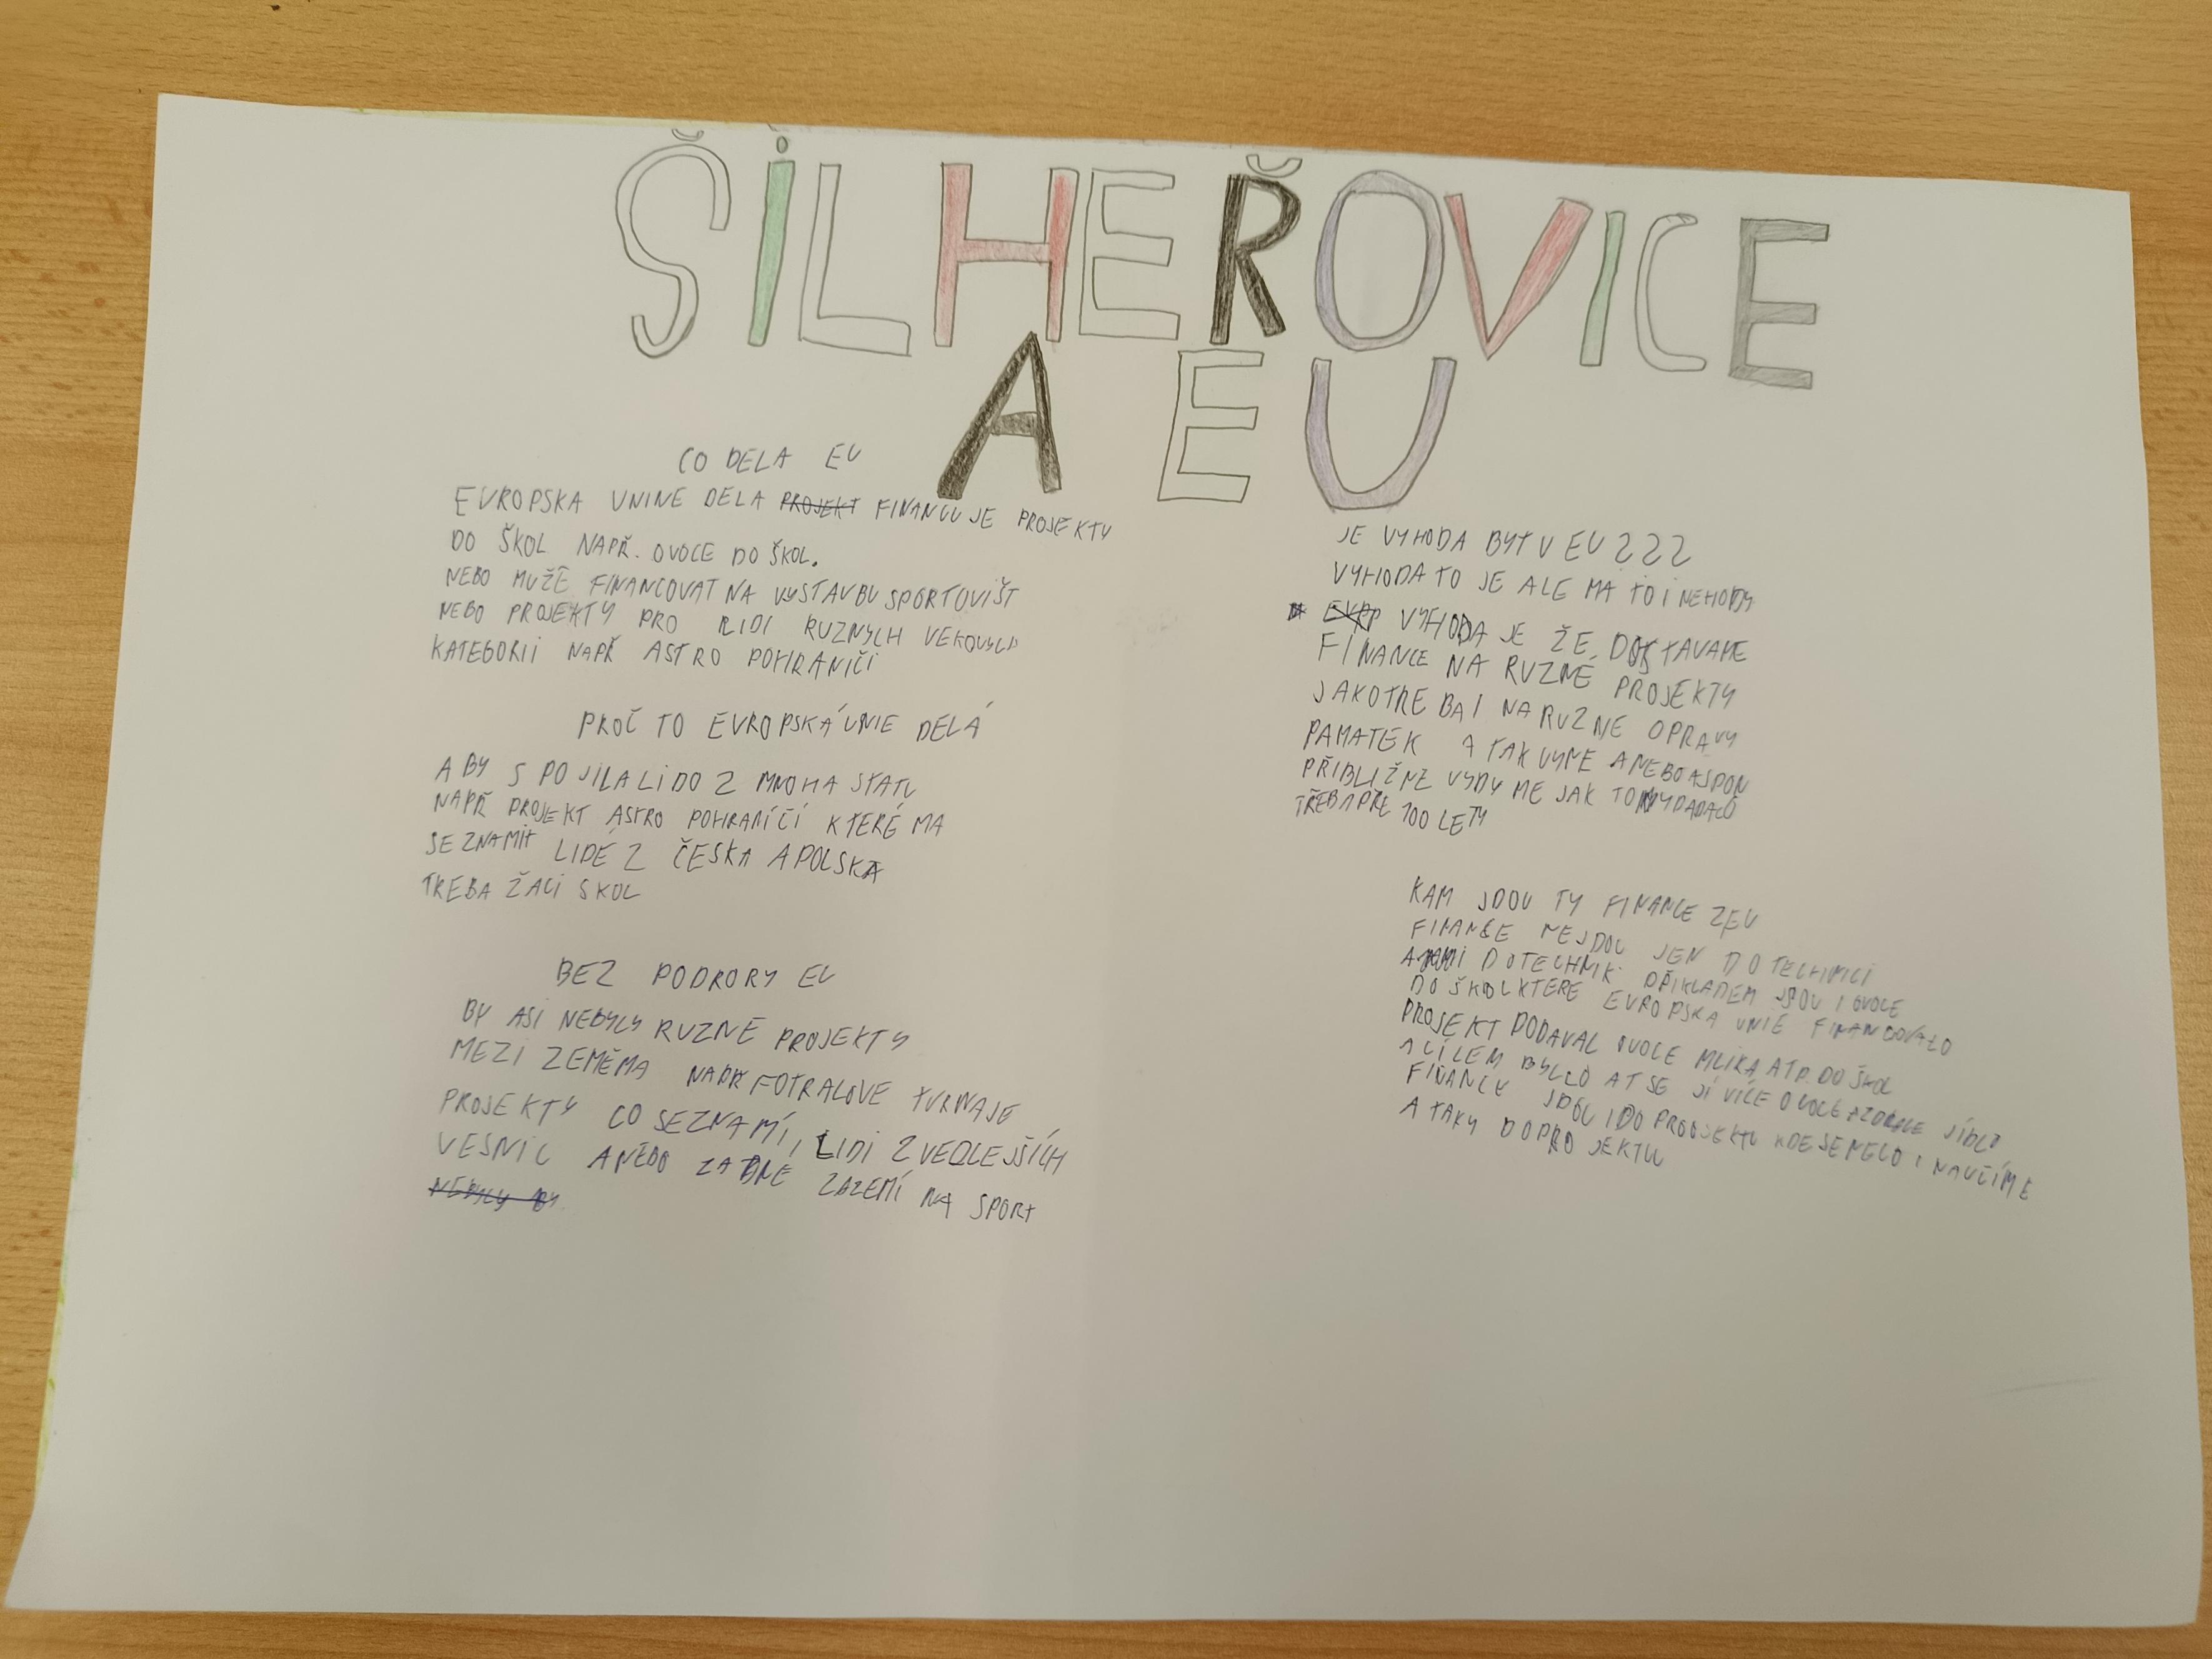 ŠILHEŘOVICE
A EU
CO DELA EU
EVROPSKA UNINE DELA PROJEKT FINANCUJE PROJEKTY
DO ŠKOL NAPŘ. OVOCE DO ŠKOL.
NEBO MUŽE FINANCOVAT NA VYSTAVBU SPORTOVIŠT
NEBO PROJEKTY PRO LIDI RUZNYCH VEKOVYCH
KATEGORII NAPŘ ASTRO POHRANIČI
PROČ TO EVROPSKÁ UNIE DELÁ
ABY SPOJILA LIDO Z MNOHA STATU
NAPŘ PROJEKT ASTRO POHRANÍČÍ KTERÉ MA
SEZNAMIT LIDÉ Z ČESKA A POLSKA
TREBA ŽACI SKOL
BEZ PODRORY EU
BY ASI NEBYLY RUZNE PROJEKTY
MEZI ZEMĚMA NAPŘ FOTRALOVE TURNAJE
PROJEKTY CO SEZNAMÍ, LIDI Z VEDLEJŠÍCH
VESNIC ANEBO ZADNE ZAZEMÍ NA SPORT
NEBYLY BY
JE VYHODA BYT V EU ???
VYHODA TO JE ALE MÁ TO I NEHODY
VYHODA JE ŽE DOSTAVAME
FINANCE NA RUZNÉ PROJEKTY
JAKOTREBA I NA RUZNE OPRAVY
PAMATEK A TAK VYME ANEBO ASPON
PŘIBLIŽNE VYDY ME JAK TO VYDADALO
TŘEBA PŘE 100 LETY
KAM JDOU TY FINANCE ZEU
FINANCE NEJDOU JEN DO TECHNICI
DOTECHNIK. DŘIKLADEM JSOU I OVOCE
DO ŠKOL KTERE EVROPSKA UNIE FINANCOVALO
PROJEKT PODAVAL OVOCE MLIKA ATP. DO ŠKOL
A CÍLEM BYLLO AT SE JÍ VÍCE OVOCE A ZDRAVE JÍDLO
FINANCE JDOU I DO PROOJEKTU KDE SE NECO I NAUČÍME
A TAKY DOPRO JEKTU